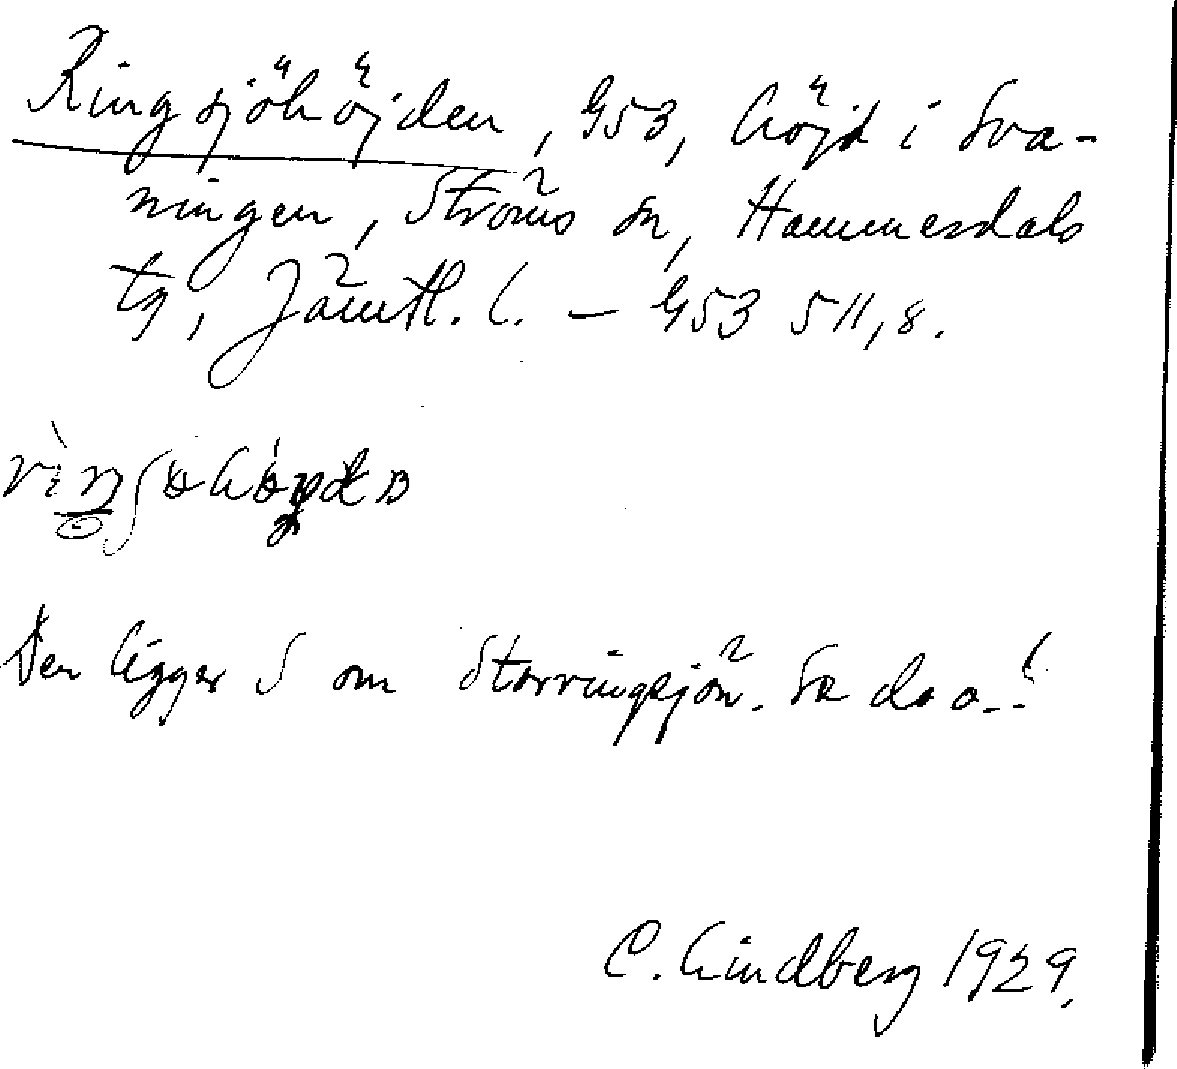 Ringsjöhöjden, G53, höjd i Sva-
ningen, Ströms sn, Hammerdals
tg, Jämtl. l. — G53 5 11, 8.
Den ligger S om Storringsjön. Se d. o.!
C. Lindberg 1929.